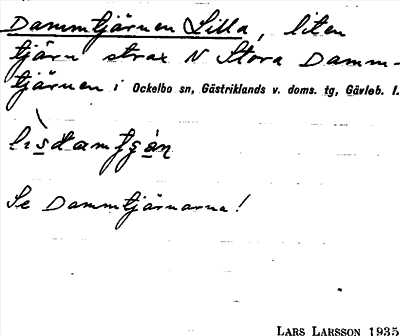 Dammtjärnen Lilla, liten
tjärn strax N Stora Damm-
tjärnen i Ockelbo sn, Gästriklands v. doms. tg, Gävleb. l.
Se Dammtjärnarna!
LARS LARSSON 1935